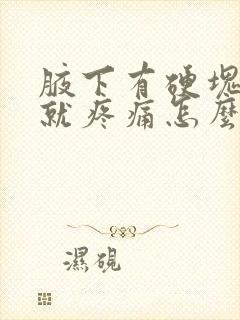 腋下有硬塊
就疼痛怎麼
濕硯